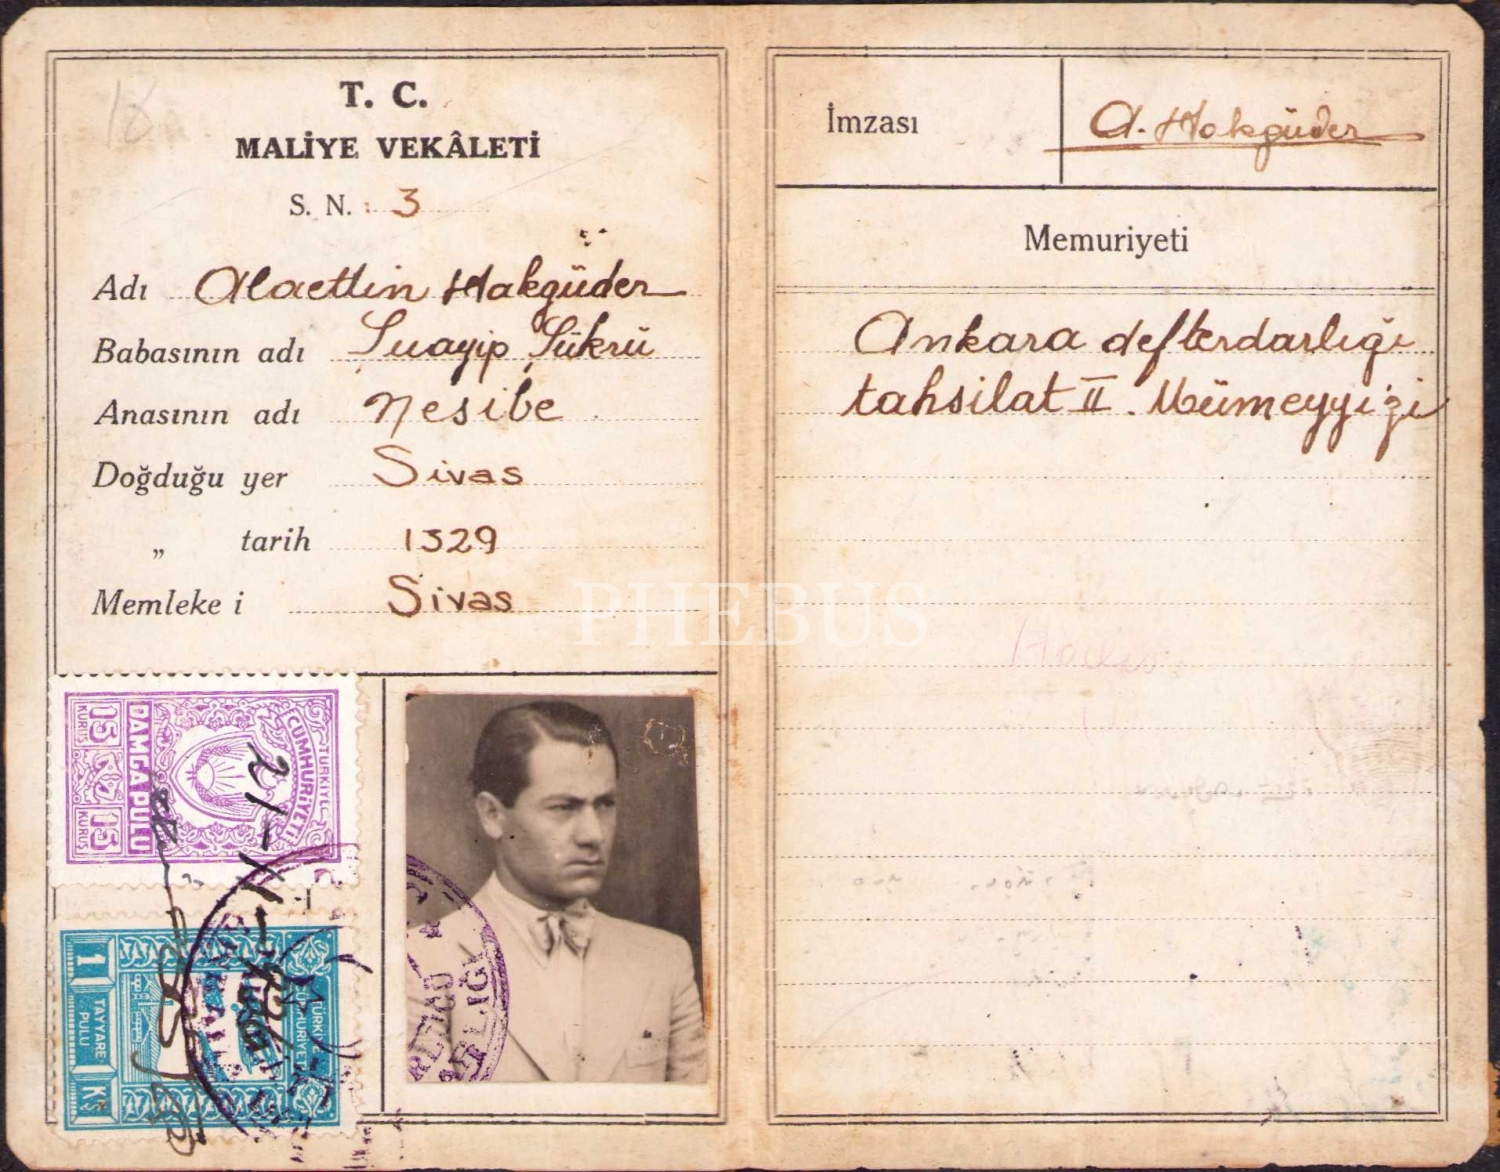 T. C.
MALİYE VEKÂLETİ
S. N. : 3
Adı Alaettin Hakgüder
Babasının adı Şuayip Şükrü
Anasının adı Nesibe
Doğduğu yer Sivas
„ tarih 1329
Memleke i Sivas
TÜRKİYE
CUMHURİYETİ
DAMGA PULU
15 KURUŞ
15 KURUŞ
TÜRKİYE
CUMHURİYETİ
TAYYARE
PULU
1 Kş
İmzası
A. Hakgüder
Memuriyeti
Ankara defterdarlığı
tahsilat II. Mümeyyizi
PHEBUS